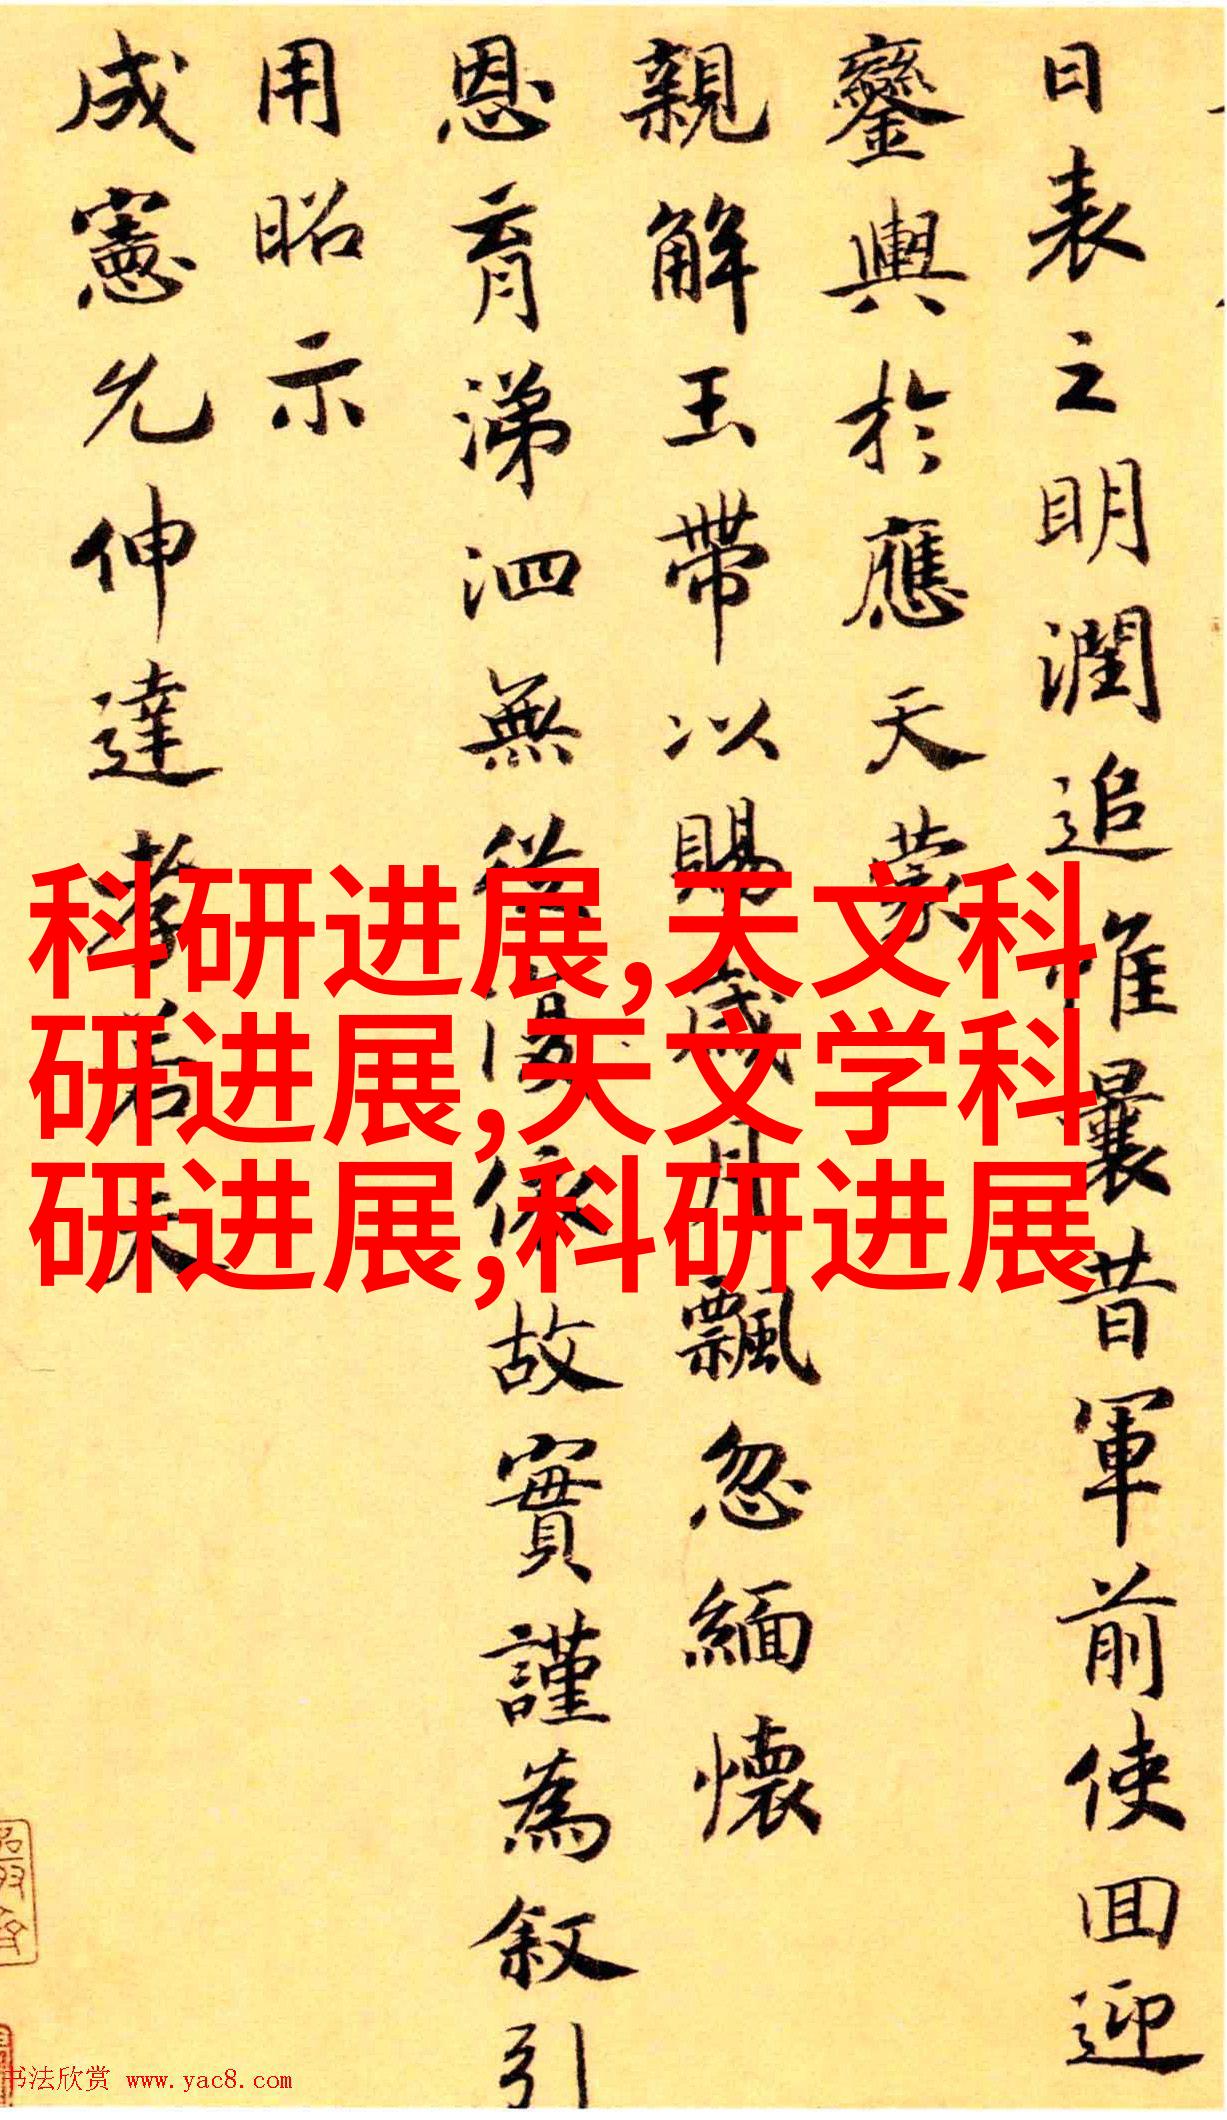 日表之明潤追惟曩昔軍前使回迎
鑾輿於應天蒙
親解玉帶以賜歲月飄忽緬懷
恩育涕泗無從傷依故實謹為叙引
用昭示
成憲允伸達孝若夫
科研进展,天文科
研进展,天文学科
研进展,科研进展
书法欣赏 www.yac8.com